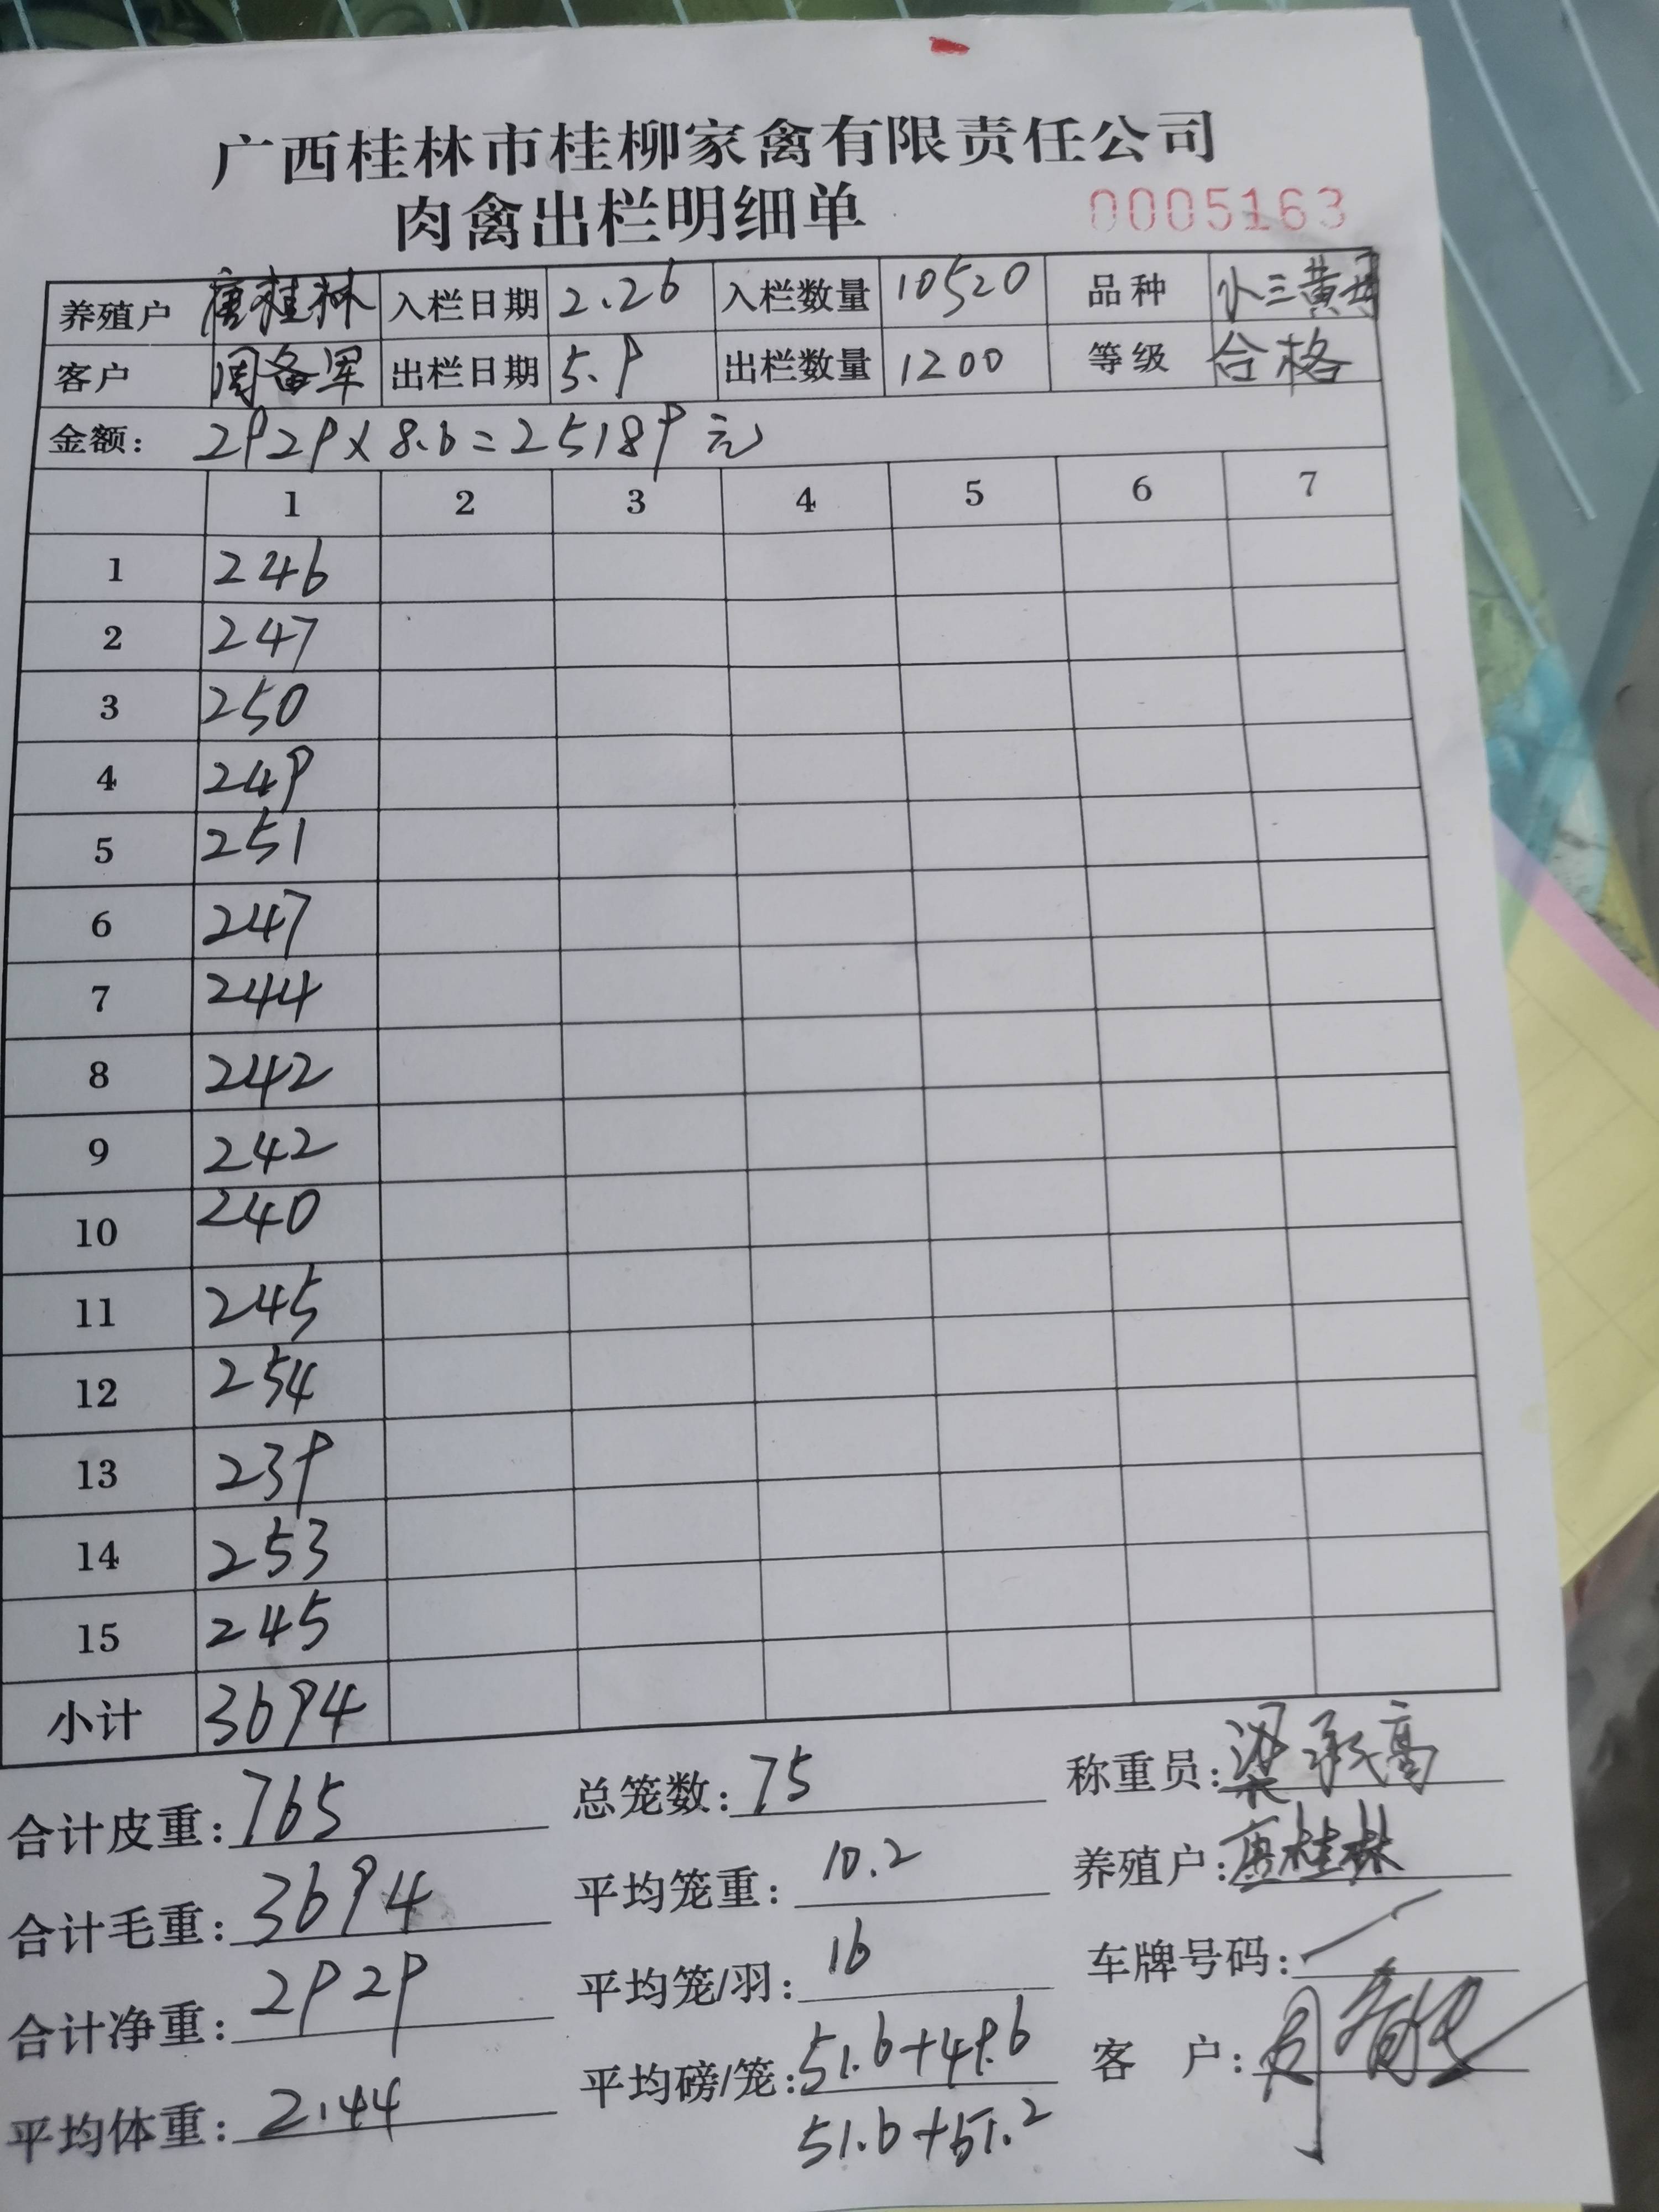 广西桂林市桂柳家禽有限责任公司
肉禽出栏明细单 0005163
养殖户 唐桂林 入栏日期 2.26 入栏数量 10520 品种 小三黄母
客户 周备军 出栏日期 5.9 出栏数量 1200 等级 合格
金额: 2929×8.6=25189元
1 2 3 4 5 6 7
1 246
2 247
3 250
4 249
5 251
6 247
7 244
8 242
9 242
10 240
11 245
12 254
13 239
14 253
15 245
小计 3694
合计皮重:765 总笼数:75 称重员:梁承高
合计毛重:3694 平均笼重:10.2 养殖户:唐桂林
合计净重:2929 平均笼/羽:16 车牌号码:
平均体重:2.44 平均磅/笼:51.6+49.6 客户:
51.6+51.2